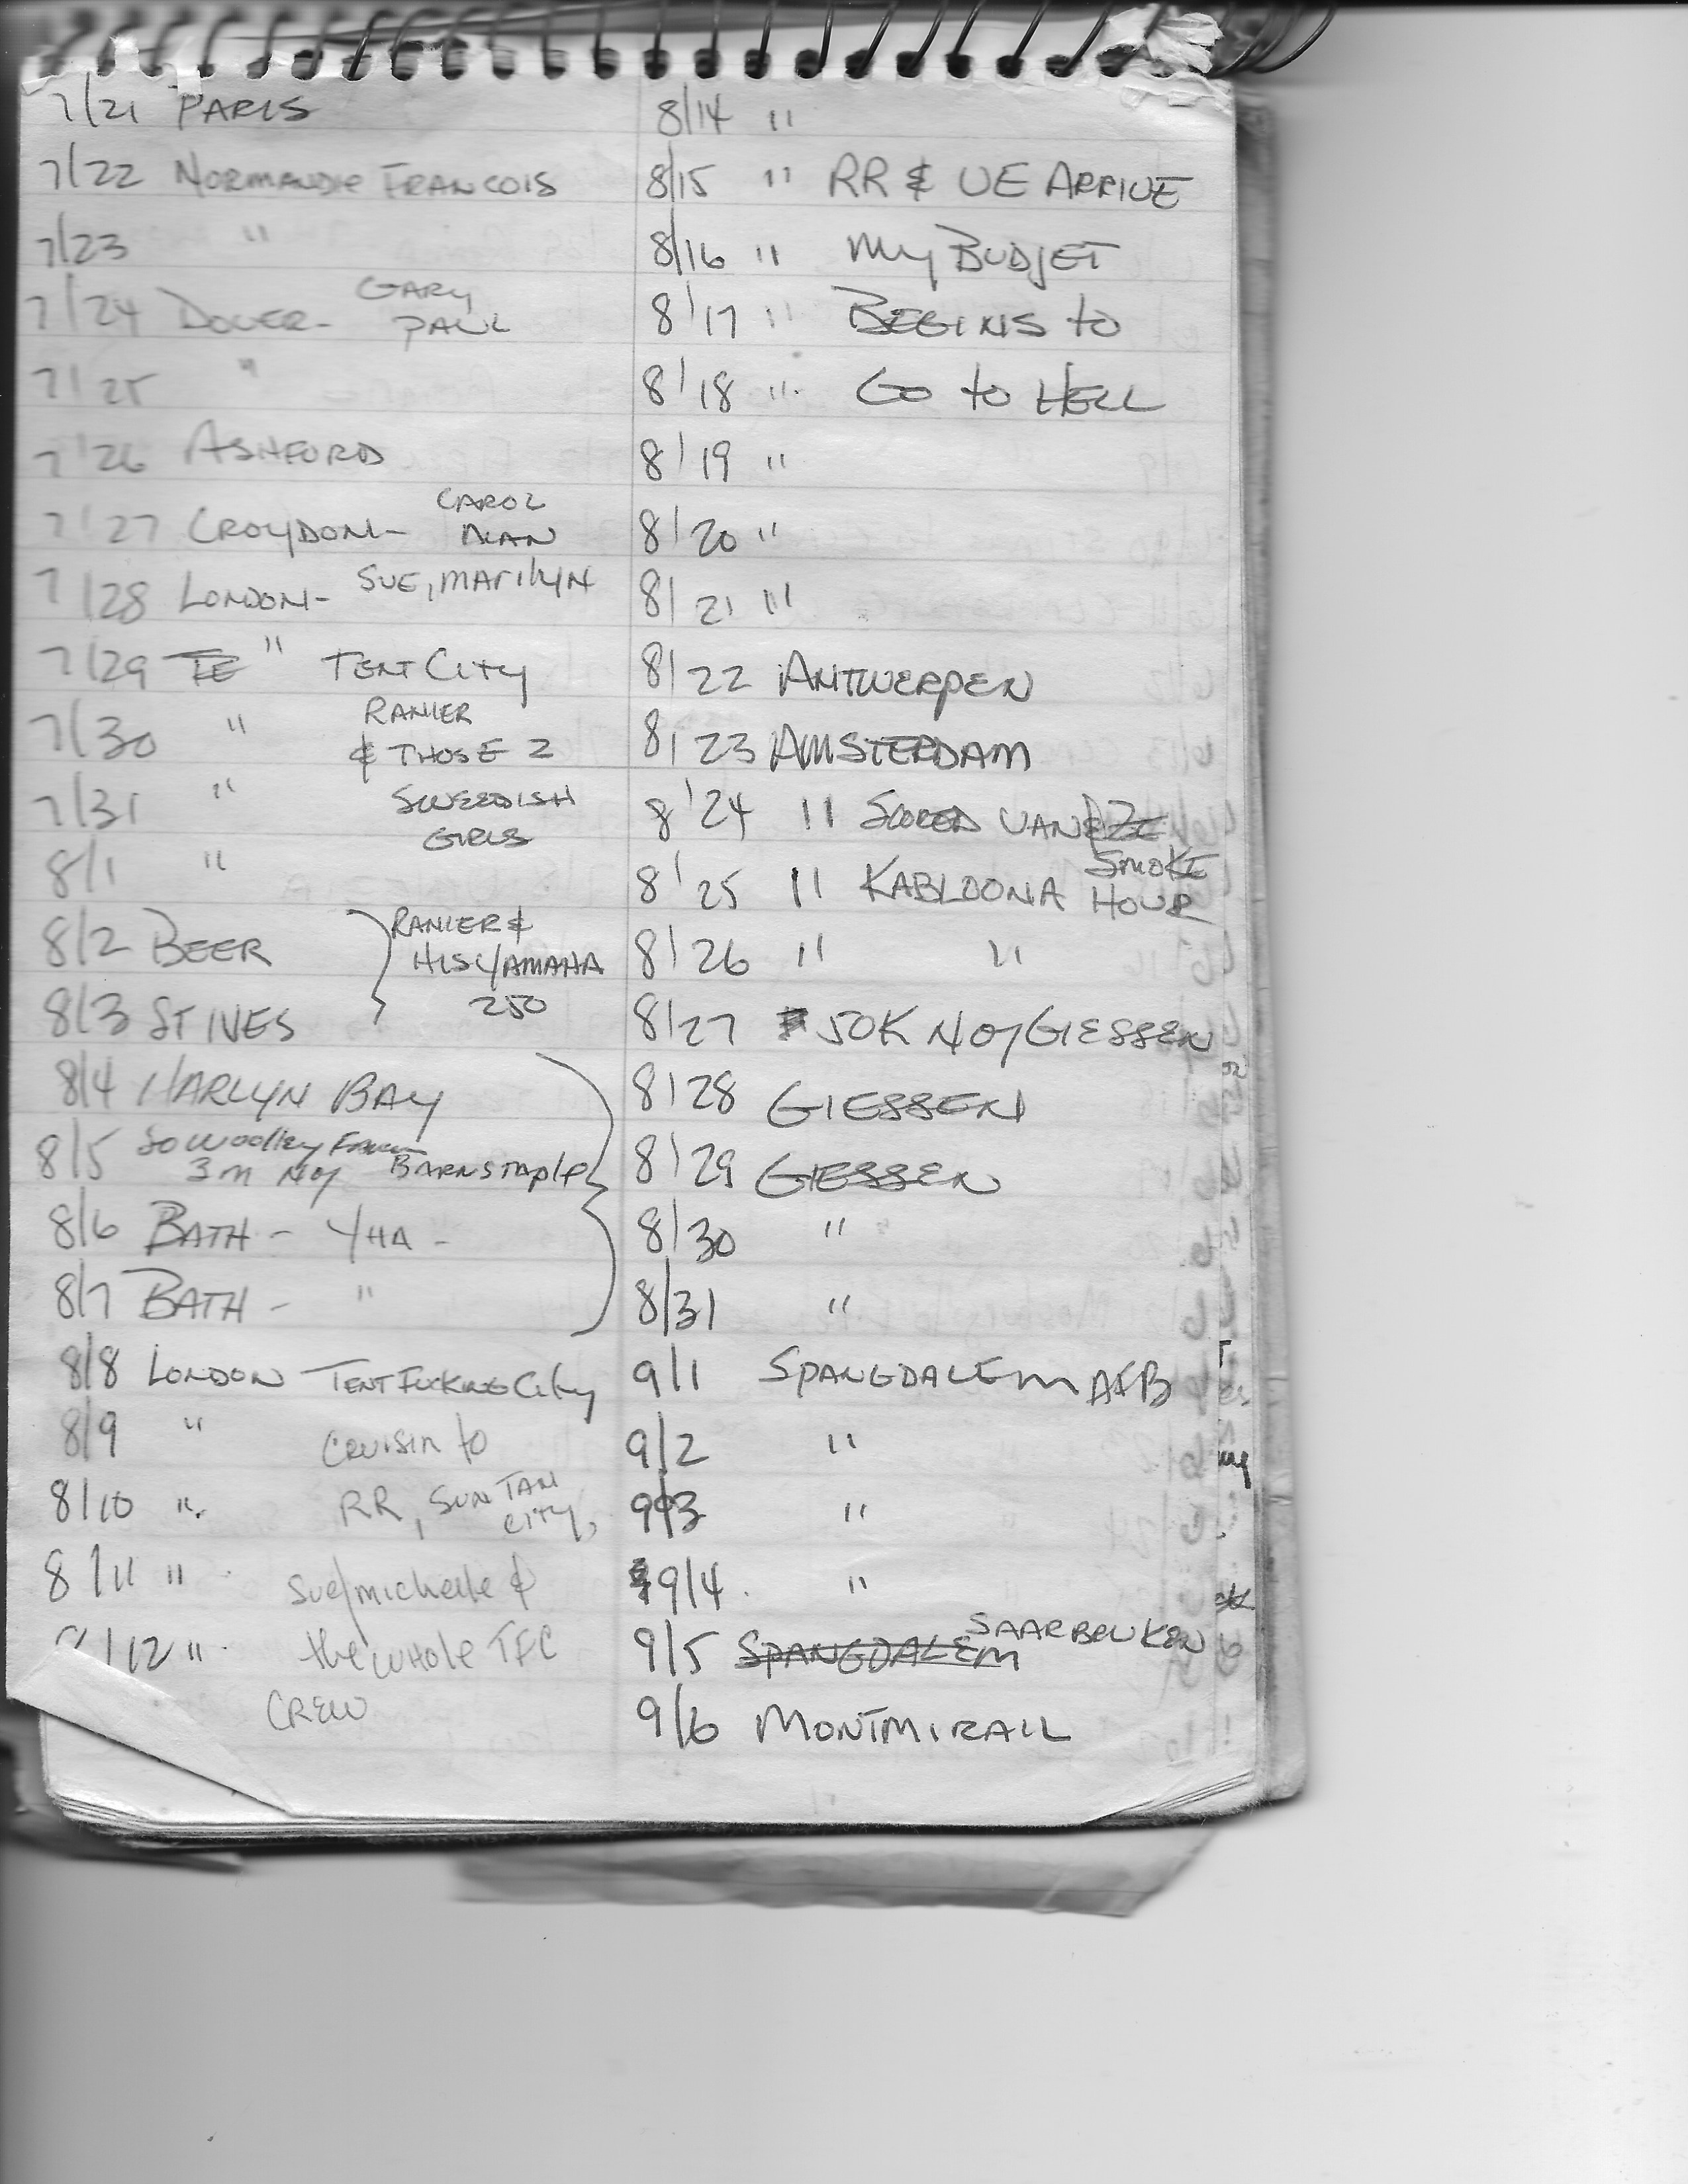 7/21 PARIS
7/22 NORMANDIE FRANCOIS
7/23 "
7/24 DOVER- GARY
PAUL
7/25 "
7/26 ASHFORD
7/27 CROYDON- CAROL
ALAN
7/28 LONDON- SUE, MARILYN
7/29 TE " TENT CITY
7/30 " RANIER
& THOSE 2
7/31 " SWEEDISH
GIRLS
8/1 "
8/2 BEER RANIER &
HIS YAMAHA
250
8/3 ST IVES
8/4 HARLYN BAY
8/5 So Woolley Farm
3m No/ BARNSTAPLE
8/6 BATH - YHA -
8/7 BATH - "
8/8 LONDON TENT FUCKING CITY
8/9 " CRUISIN to
8/10 " RR, SUN TAN
CITY,
8/11 " Sue/michelle &
8/12 " the WHOLE TFC
CREW
8/14 "
8/15 " RR & UE ARRIVE
8/16 " My BUDJET
8/17 " BEGINS to
8/18 " Go to HELL
8/19 "
8/20 "
8/21 "
8/22 ANTWERPEN
8/23 AMSTERDAM
8/24 " SCORED VAN
8/25 " KABLOONA SMOKE
HOUR
8/26 " "
8/27 50K No/ GIESSEN
8/28 GIESSEN
8/29 GIESSEN
8/30 "
8/31 "
9/1 SPANGDALEM AFB
9/2 "
9/3 "
9/4 "
9/5 SPANGDALEM SAARBRUKEN
9/6 MONTMIRAIL